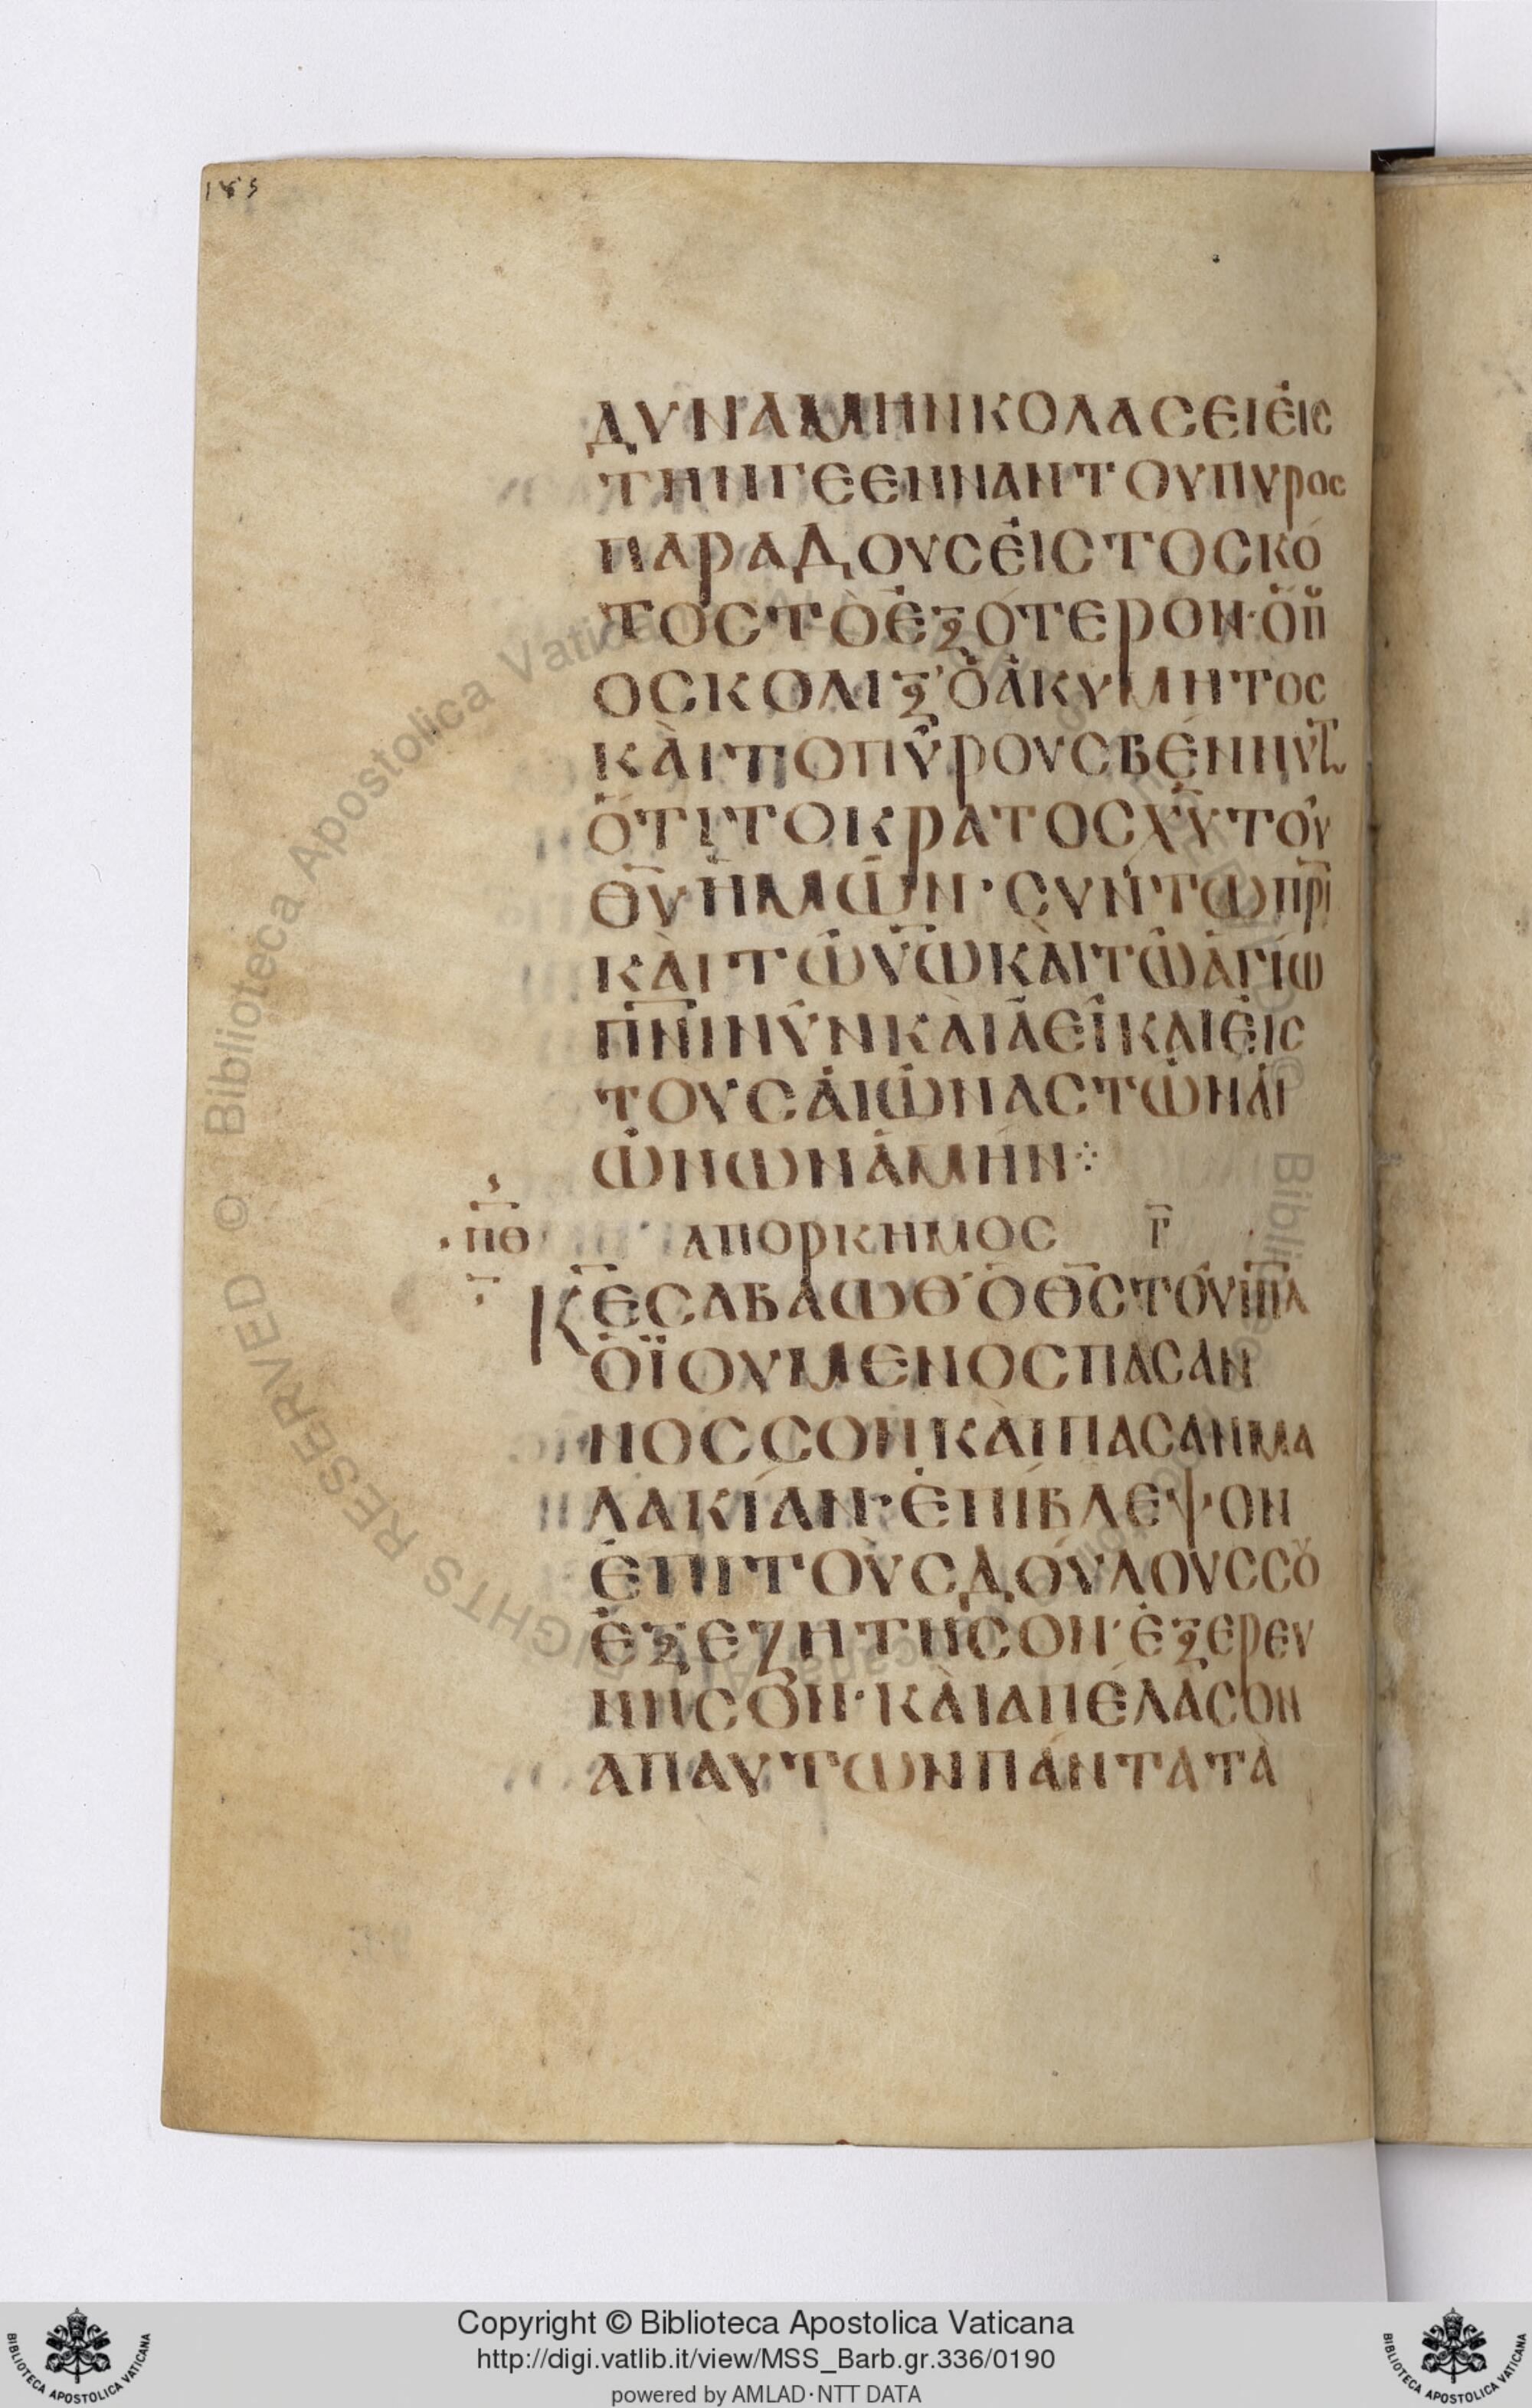 185
ΔΥΝΑΜΗΝΚΟΛΑΣΕΙἘΙΣ
ΤΗΝΓΕΕΝΝΑΝΤΟΥΠΥΡΟΣ
ΠΑΡΑΔΟΥΣἘΙΣΤΟΣΚΌ
ΤΟΣΤῸἘΞΌΤΕΡΟΝ·ὍΠȢ
ΟΣΚΟΛΙΞ᾽ὉἈΚΥΜΗΤΟΣ
ΚᾺΙΤΟΠΥ͂ΡΟΥΣΒΈΝΝΥΤ
ὍΤΙΤΟΚΡΑΤΟΣΧ̅Υ̅ΤΟΥ͂
Θ̅Υ̅ἩΜΩ͂Ν·ΣΥΝΤΩΠ̅Ρ̅Ι̅
ΚᾺΙΤΩ͂Υ̅Ω̅ΚᾺΙΤΩ͂ἉΓΊΩ
Π̅Ν̅Ι̅ΝΥ͂ΝΚᾺΙἈΕῚΚΑΙἘΙΣ
ΤΟΥΣἈΙΩ͂ΝΑΣΤΩ͂ΝἈΙ
ΏΝΩΝἈΜΉΝ⁘
Π̅Θ̅ ΑΠΟΡΚΗΜΟΣ Γ̅
Κ̅Ε̅ΣΑΒΑΩΘ᾽ὉΘ̅Σ̅ΤΟΥ͂Ι̅Η̅Λ̅
ὉΪΟΥΜΕΝΟΣΠΑΣΑΝ
ΝΟΣΣΟΝΚᾺΙΠΑΣΑΝΜΑ
ΛΑΚΊΑΝ·ἘΠΊΒΛΕΨΟΝ
ἘΠΙΤΟῪΣΔΟΎΛΟΥΣΣȢ
ἘΞΕΖΗΤΗΣΟΝ·ἘΞΕΡΕΥ
ΝΗΣΟΝ·ΚᾺΙΑΠΈΛΑΣΟΝ
ΑΠΑΥΤΩΝΠΆΝΤΑΤᾺ
Biblioteca Apostolica Vaticana
RIGHTS RESERVED ©
Copyright © Biblioteca Apostolica Vaticana
http://digi.vatlib.it/view/MSS_Barb.gr.336/0190
powered by AMLAD·NTT DATA
BIBLIOTECA APOSTOLICA VATICANA
BIBLIOTECA APOSTOLICA VATICANA